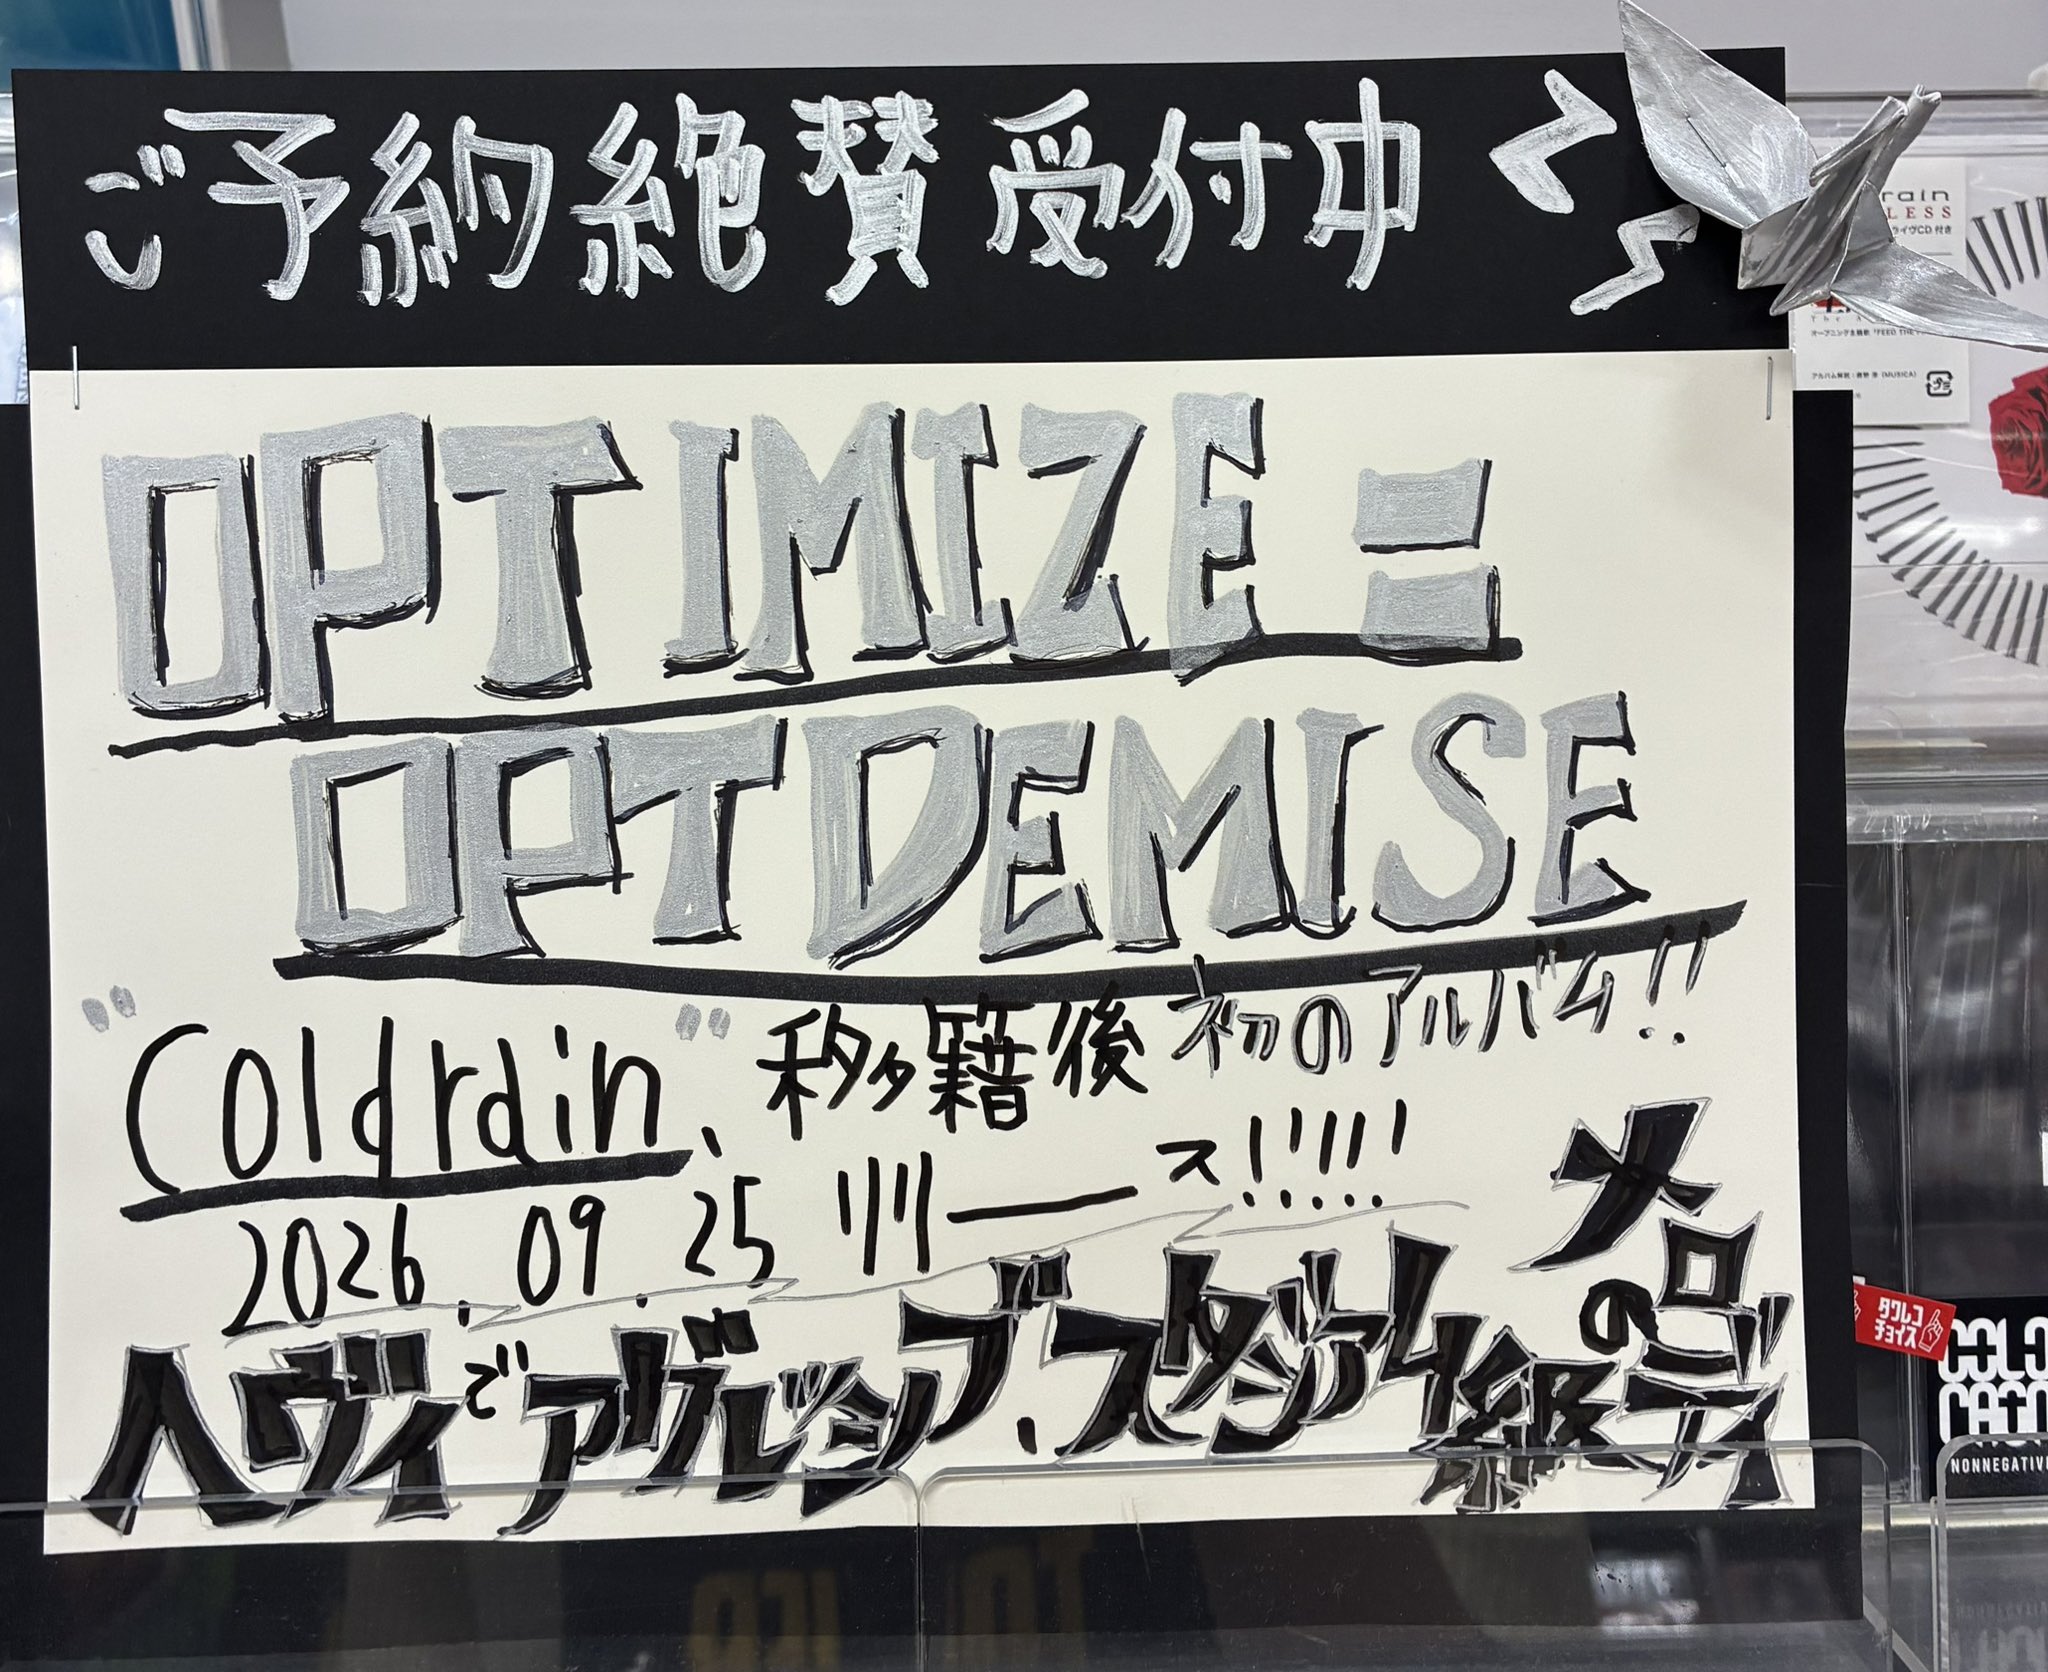 ご予約絶賛受付中
OPTIMIZE =
OPTDEMISE
"Coldrain"、移籍後初のアルバム!!
2026.09.25リリース!!!!!
ヘヴィでアグレッシブ、スタジアム級のメロディ
rain
LESS
ライヴCD付き
オープニング主題歌「FEED THE
アルバム解説:鹿野 淳(MUSICA)
タワレコ
チョイス
NONNEGATIVE